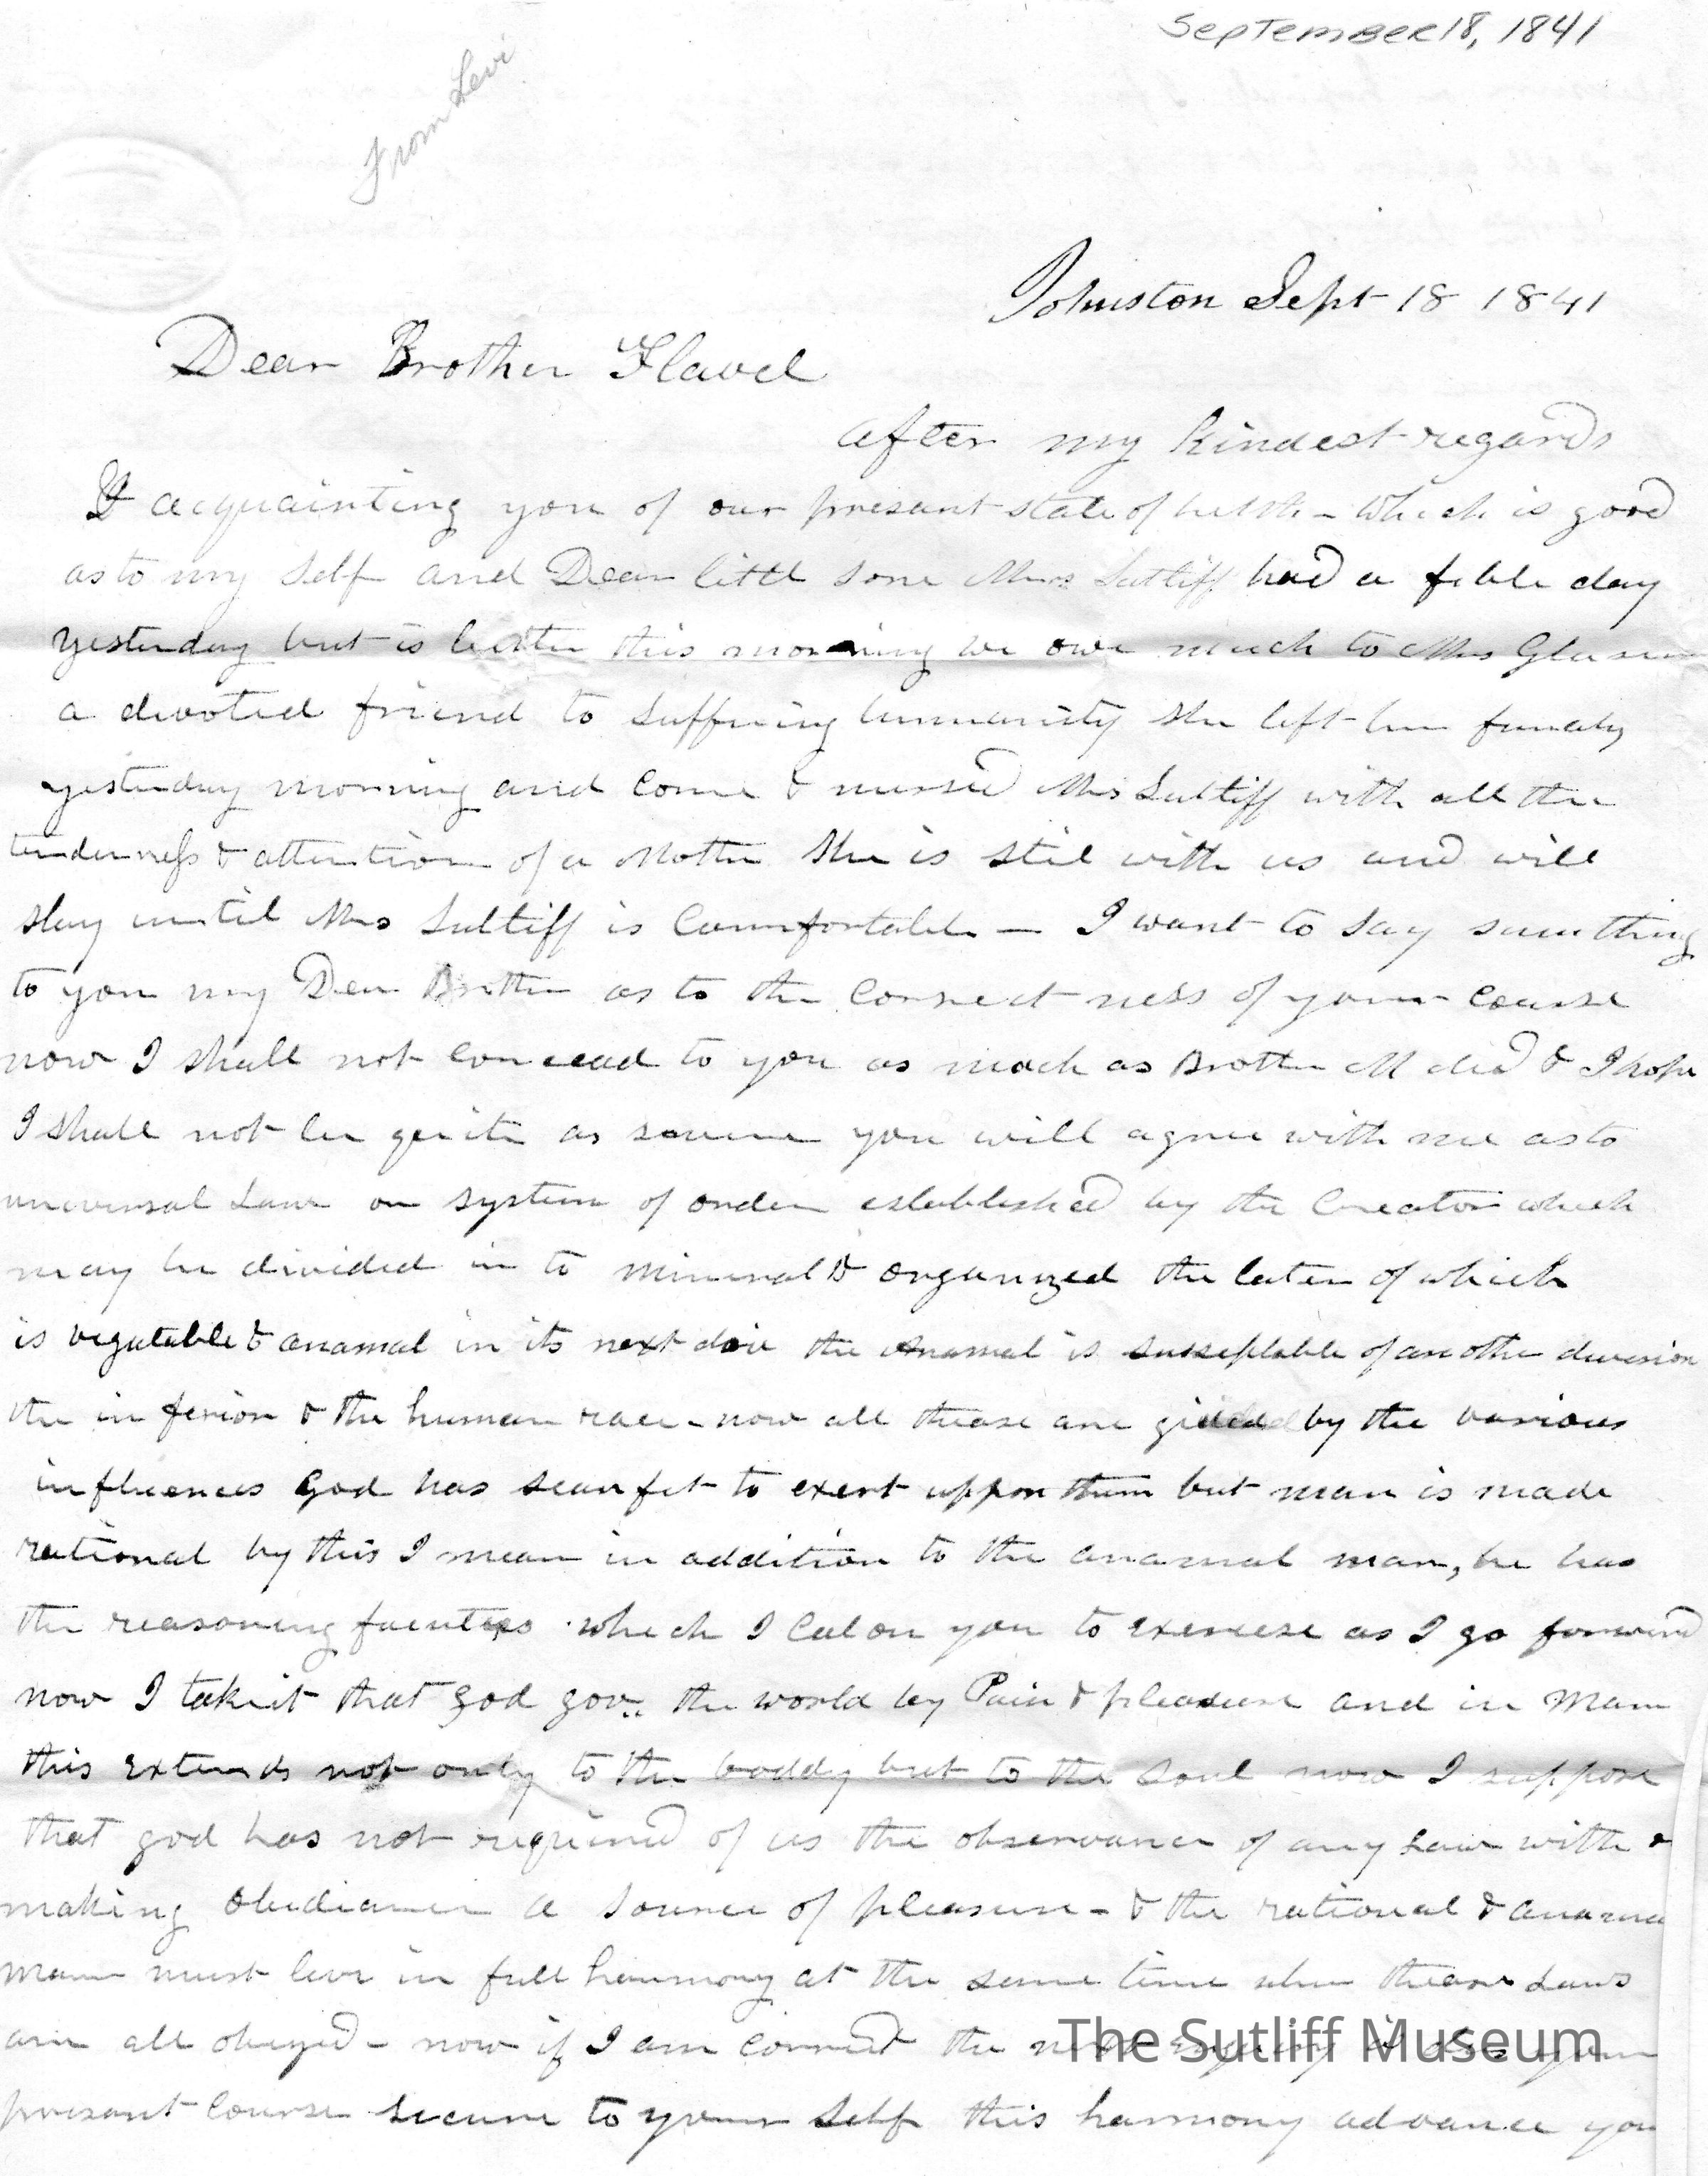 September 18, 1841
From Levi
Johnston Sept 18 1841
Dear Brother Flavel
After my kindest regards
& acquainting you of our presant state of helth - which is good
as to my self and Dear littl sone Mrs Sutliff had a feble day
yesterday but is better this morning we owe much to Mrs
a devoted friend to suffering humanity she left her famaly
yesterday morning and come & nursed Mrs Sutliff with all the
tenderness & attention of a Mother she is stil with us and will
stay until Mrs Sutliff is Comfortable — I want to say sumthing
to you my Dear Brother as to the Correct ness of your course
now I shall not concead to you as much as Brother M did & I hope
I shall not be quite as severe you will agree with me as to
universal Law or system of order established by the Creator which
may be divided in to mineral & organized the later of which
is vegatable & anamal in its next the anamal is susseptable of another division
the in ferior & the human race - now all thease are guided by the various
influences god has sean fit to exert uppon them but man is made
rational by this I mean in addition to the anamal man, he has
the reasoning which I cal on you to exercise as I go forward
now I take it that god gov.. the world by Pain & pleasure and in Man
this extends not only to the boddy but to the soul now I suppose
that god has not required of us the observance of any Law with o
making obediance a source of pleasure - & the rational & anama
man must live in full harmony at the same time when thease Laws
are all obeyed - now if I am correct the next enquiry is does your
presant course secure to your self this harmony advance you
The Sutliff Museum